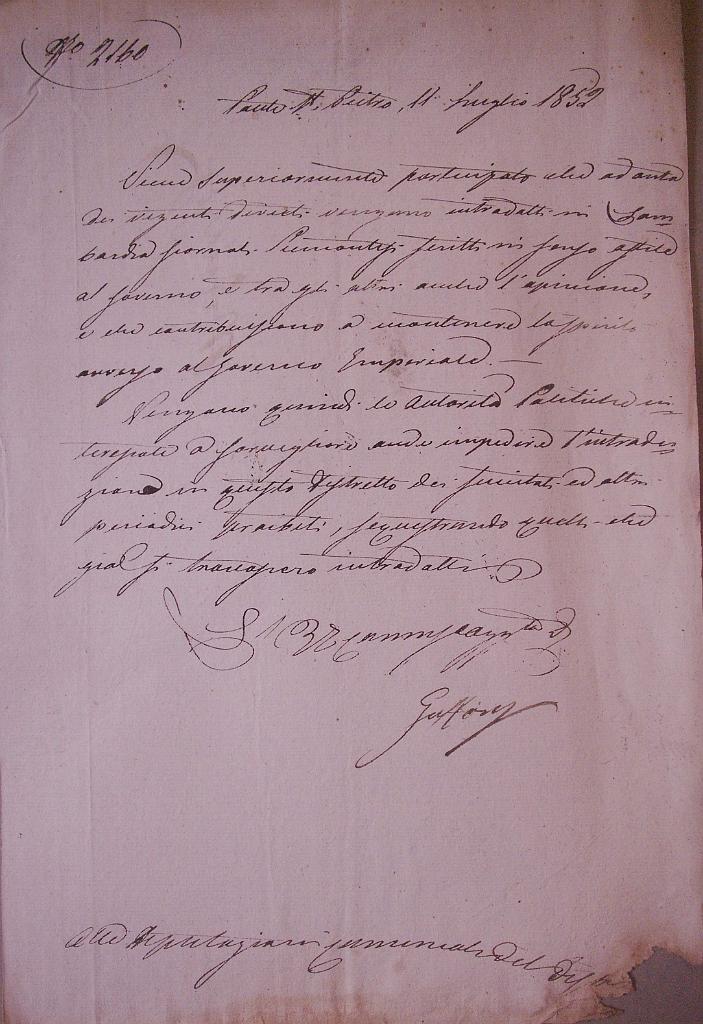 No 2160
Ponte S. Pietro, 11 Luglio 1852
Viene superiormente partecipato che ad onta
dei vigenti divieti vengano introdotti in Lom=
bardia giornali Piemontesi scritti in senso ostile
al Governo, e tra gli altri anche l'opinione,
e che contribuiscono a mantenere lo spirito
avverso al Governo Imperiale. —
Vengano quindi le Autorità Politiche in=
teressate a sorvegliare onde impedire l'introdu=
zione in questo Distretto dei suscitati ed altri
periodici proibiti, sequestrando quelli che
già si trovassero introdotti
L' I R Commiss Agg
Alle Deputazioni Comunali del